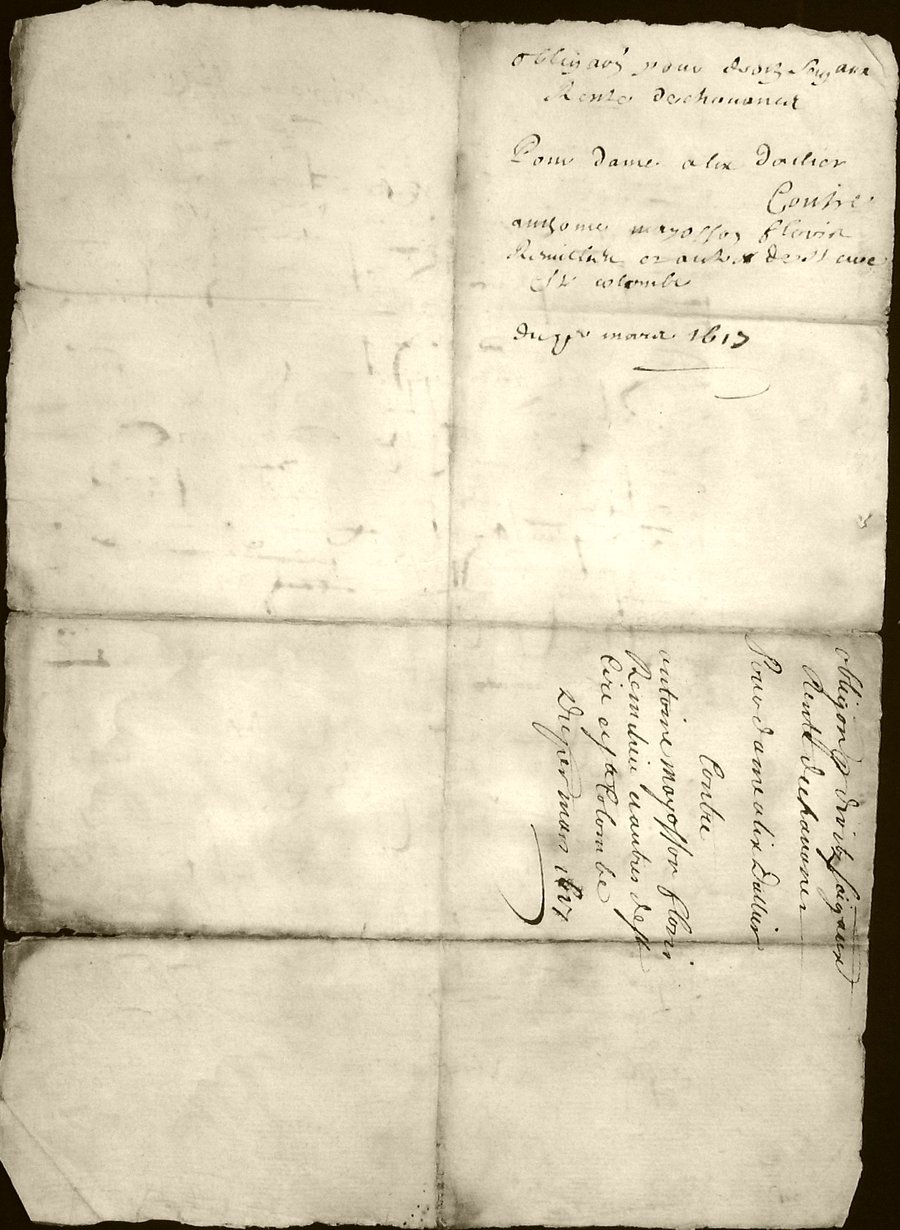 obligaõn pour droitz seigaux
Rente de chauanes
Pour dame alix Dallier
Contre
anthoine mayosson floris
Remillieu et autres de St cire
et Ste colombe
Du per mars 1617
obligon p droitz seigaux
Rente de chauanes
Pour dame alix Dallier
Contre
antoine mayosson floris
Remilieu et autres de St
Cire et Ste Colombe
Du per mars 1617